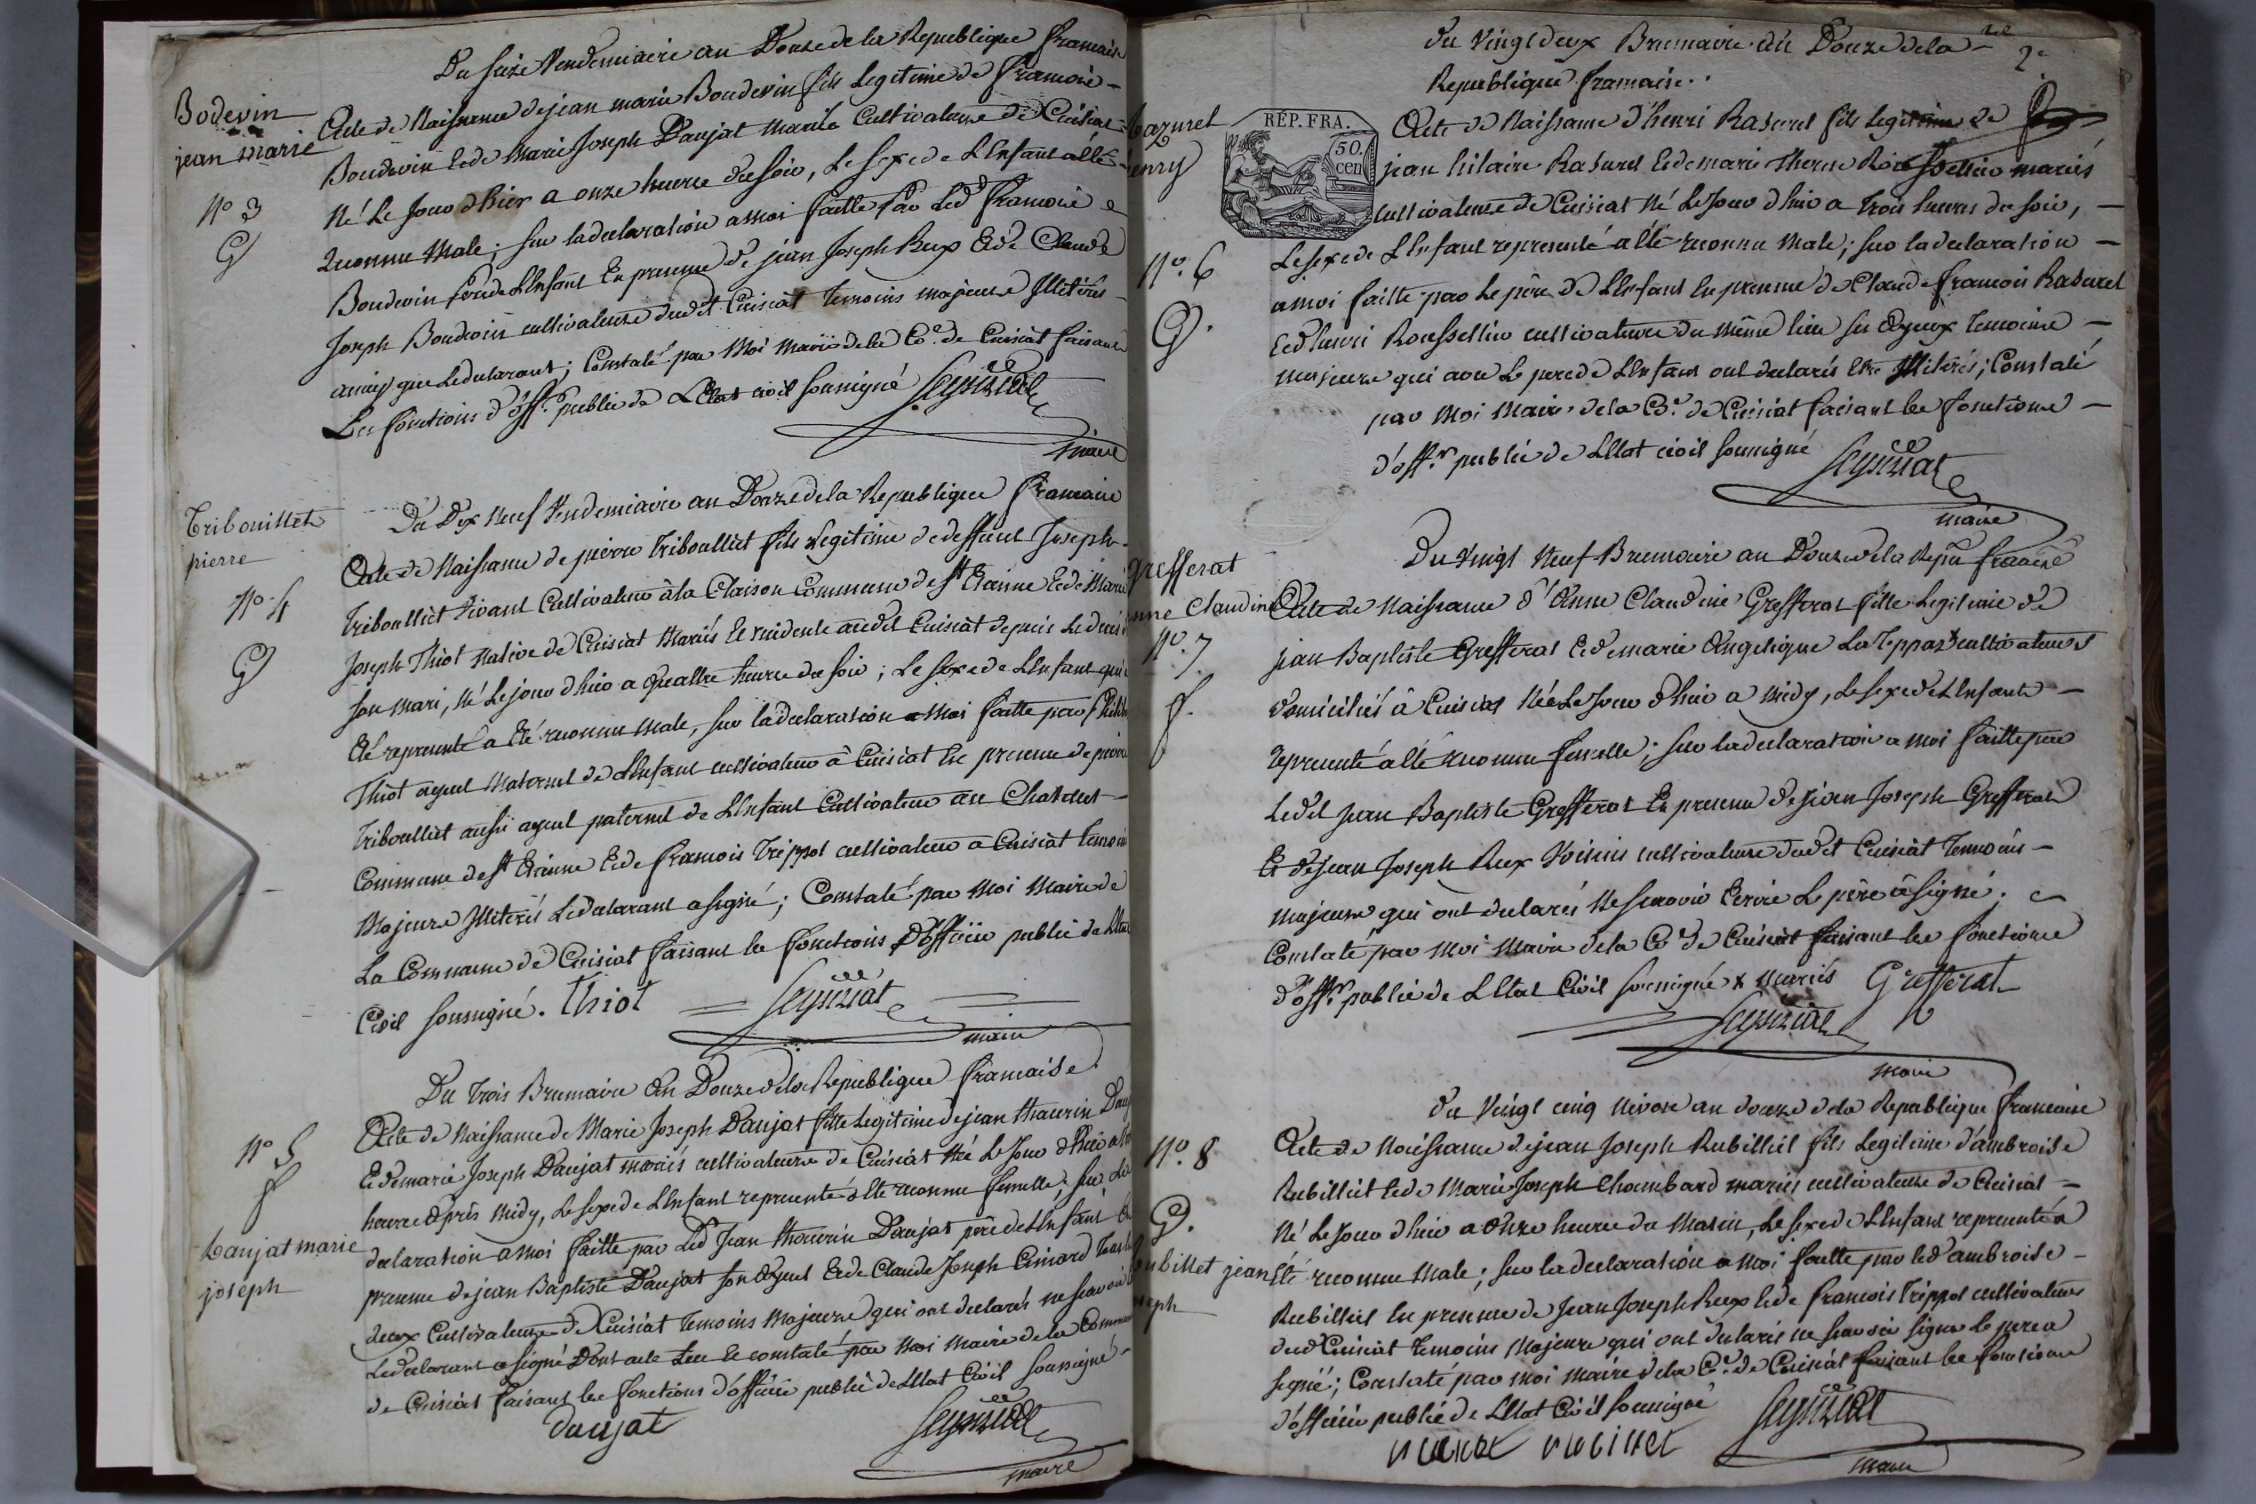 Du seize Vendemiaire an Douze de la Republique francaise
Bodevin
jean marie
N.o 3
G
Acte de Naissance de jean marie Boudevin fils Legitime de francois –
Boudevin et de Marie Joseph Daujat Mariés Cultivateurs de Cuisiat
Né Le Jour d'hier a onze heures du soir, Le sexe de L'Enfant a été
reconnu Male; sur la declaration a moi faitte par Led. francois
Boudevin pere de L'Enfant En presence de jean Joseph Rux Et de Claude
Joseph Boudevin cultivateurs dudit Cuisiat Temoins majeurs Illiterés
ainsy que Le declarant; Constaté par Moi Maire de la Co.e de Cuisiat faisant
Les fonctions d'off.r public de L'Etat civil soussigné
maire
Du Dix Neuf Vendemiaire an Douze de la Republique francaise
Tribouillet
pierre
N.o 4
G
Acte de Naissance de pierre Triboulliet fils Legitime de deffunt Joseph
Triboulliet vivant Cultivateur à la Claison Commune de St Etienne Et de Marie
Joseph Thiot Native de Cuisiat Mariés Et residente audit Cuisiat depuis Le deces de
son mari, Né Le jour d'hier a quattre heures du soir; Le sexe de L'Enfant qui a
Eté representé a Eté reconnu male, sur la declaration a Moi faitte par
Thiot ayeul Maternel de L'Enfant cultivateur à Cuisiat En presence de pierre
Triboulliet aussi ayeul paternel de L'Enfant Cultivateur au
Commune de St Etienne Et de francois Trippoz cultivateur a Cuisiat Temoins
Majeurs Illiterés Le declarant a signé; Constaté par Moi Maire de
La Commune de Cuisiat faisant les fonctions d'officier public de L'Etat
Civil soussigné. Thiot
maire
Du Trois Brumaire An Douze de la Republique francaise
N.o 5
f
Daujat marie
joseph
Acte de Naissance de Marie Joseph Daujat fille Legitime de jean
Et de marie Joseph Daujat mariés cultivateurs de Cuisiat Né Le Jour d'hier a
heures après midy, Le sexe de L'Enfant representé a Eté reconnu femelle, sur la
declaration a moi faitte par Led. Jean Daujat père de L'Enfant En
presence de jean Baptiste Daujat son Ayeul Et de Claude Joseph
deux Cultivateurs de Cuisiat Temoins Majeurs qui ont declarés ne scavoir
Le declarant a signé Dont acte Leu Et constaté par Moi Maire de la Commune
de Cuisiat faisant les fonctions d'officier public de L'Etat Civil soussigné –
daujat
maire
2e
Du Vingt deux Brumaire an Douze de la
Republique francaise.
RÉP. FRA.
50.
cen
Razuret
henry
N.o 6
G.
Acte de Naissance d'henri Rasurel fils Legitime de
jean hilaire Rasurel Et de marie Therese Roussellin mariés
cultivateurs de Cuisiat Né Le Jour d'hier a Trois heures du soir, –
Le sexe de L'Enfant representé a Eté reconnu Male; sur la declaration –
a moi faitte par Le père de L'Enfant En presence de Claude francois Rasurel
Et d'henri Roussellin cultivateurs du même lieu ses Ayeux Temoins –
majeurs qui avec Le pere de L'Enfant ont declarés Etre Illiterés; Constaté
par Moi Maire de la Co.e de Cuisiat faisant les fonctions –
d'off.r public de L'Etat civil soussigné
maire
Du Vingt Neuf Brumaire an Douze de la Repu francaise
grefferat
anne Claudine
N.o 7
f.
Acte de Naissance d'Anne Claudine Grefferat fille Legitime de
jean Baptiste Grefferat Et de marie Angelique La Teppaz x cultivateurs
domiciliés à Cuisiat Née Le Jour d'hier a midy, Le sexe de L'Enfant –
representé a Eté reconnu femelle; sur la declaration a moi faitte par
Ledit Jean Baptiste Grefferat En presence de jean Joseph Grefferat
Et de jean Joseph Rux Voisins cultivateurs dudit Cuisiat Temoins –
majeurs qui ont declarés Ne scavoir Ecrire Le père a signé;
Constaté par Moi Maire de la Co.e de Cuisiat faisant les fonctions
d'off.r public de L'Etat Civil soussigné x Mariés Grefferat
maire
Du Vingt cinq Nivose an douze de la Republique francaise
N.o 8
G.
Rubillet jean
joseph
Acte de Naissance de jean Joseph Rubilliet fils Legitime d'ambroise
Rubilliet Et de Marie Joseph Chambard mariés cultivateurs de Cuisiat –
Né Le Jour d'hier a Onze heures du Matin, Le sexe de L'Enfant representé a
Eté reconnu Male; sur la declaration a Moi faitte par led. ambroise –
Rubilliet En presence de Jean Joseph Rux Et de francois Trippoz cultivateurs
dud. Cuisiat Temoins Majeurs qui ont declarés ne scavoir signer Le pere a
signé; Constaté par Moi Maire de la Co.e de Cuisiat faisant les fonctions
d'officier public de L'Etat Civil soussigné
maire